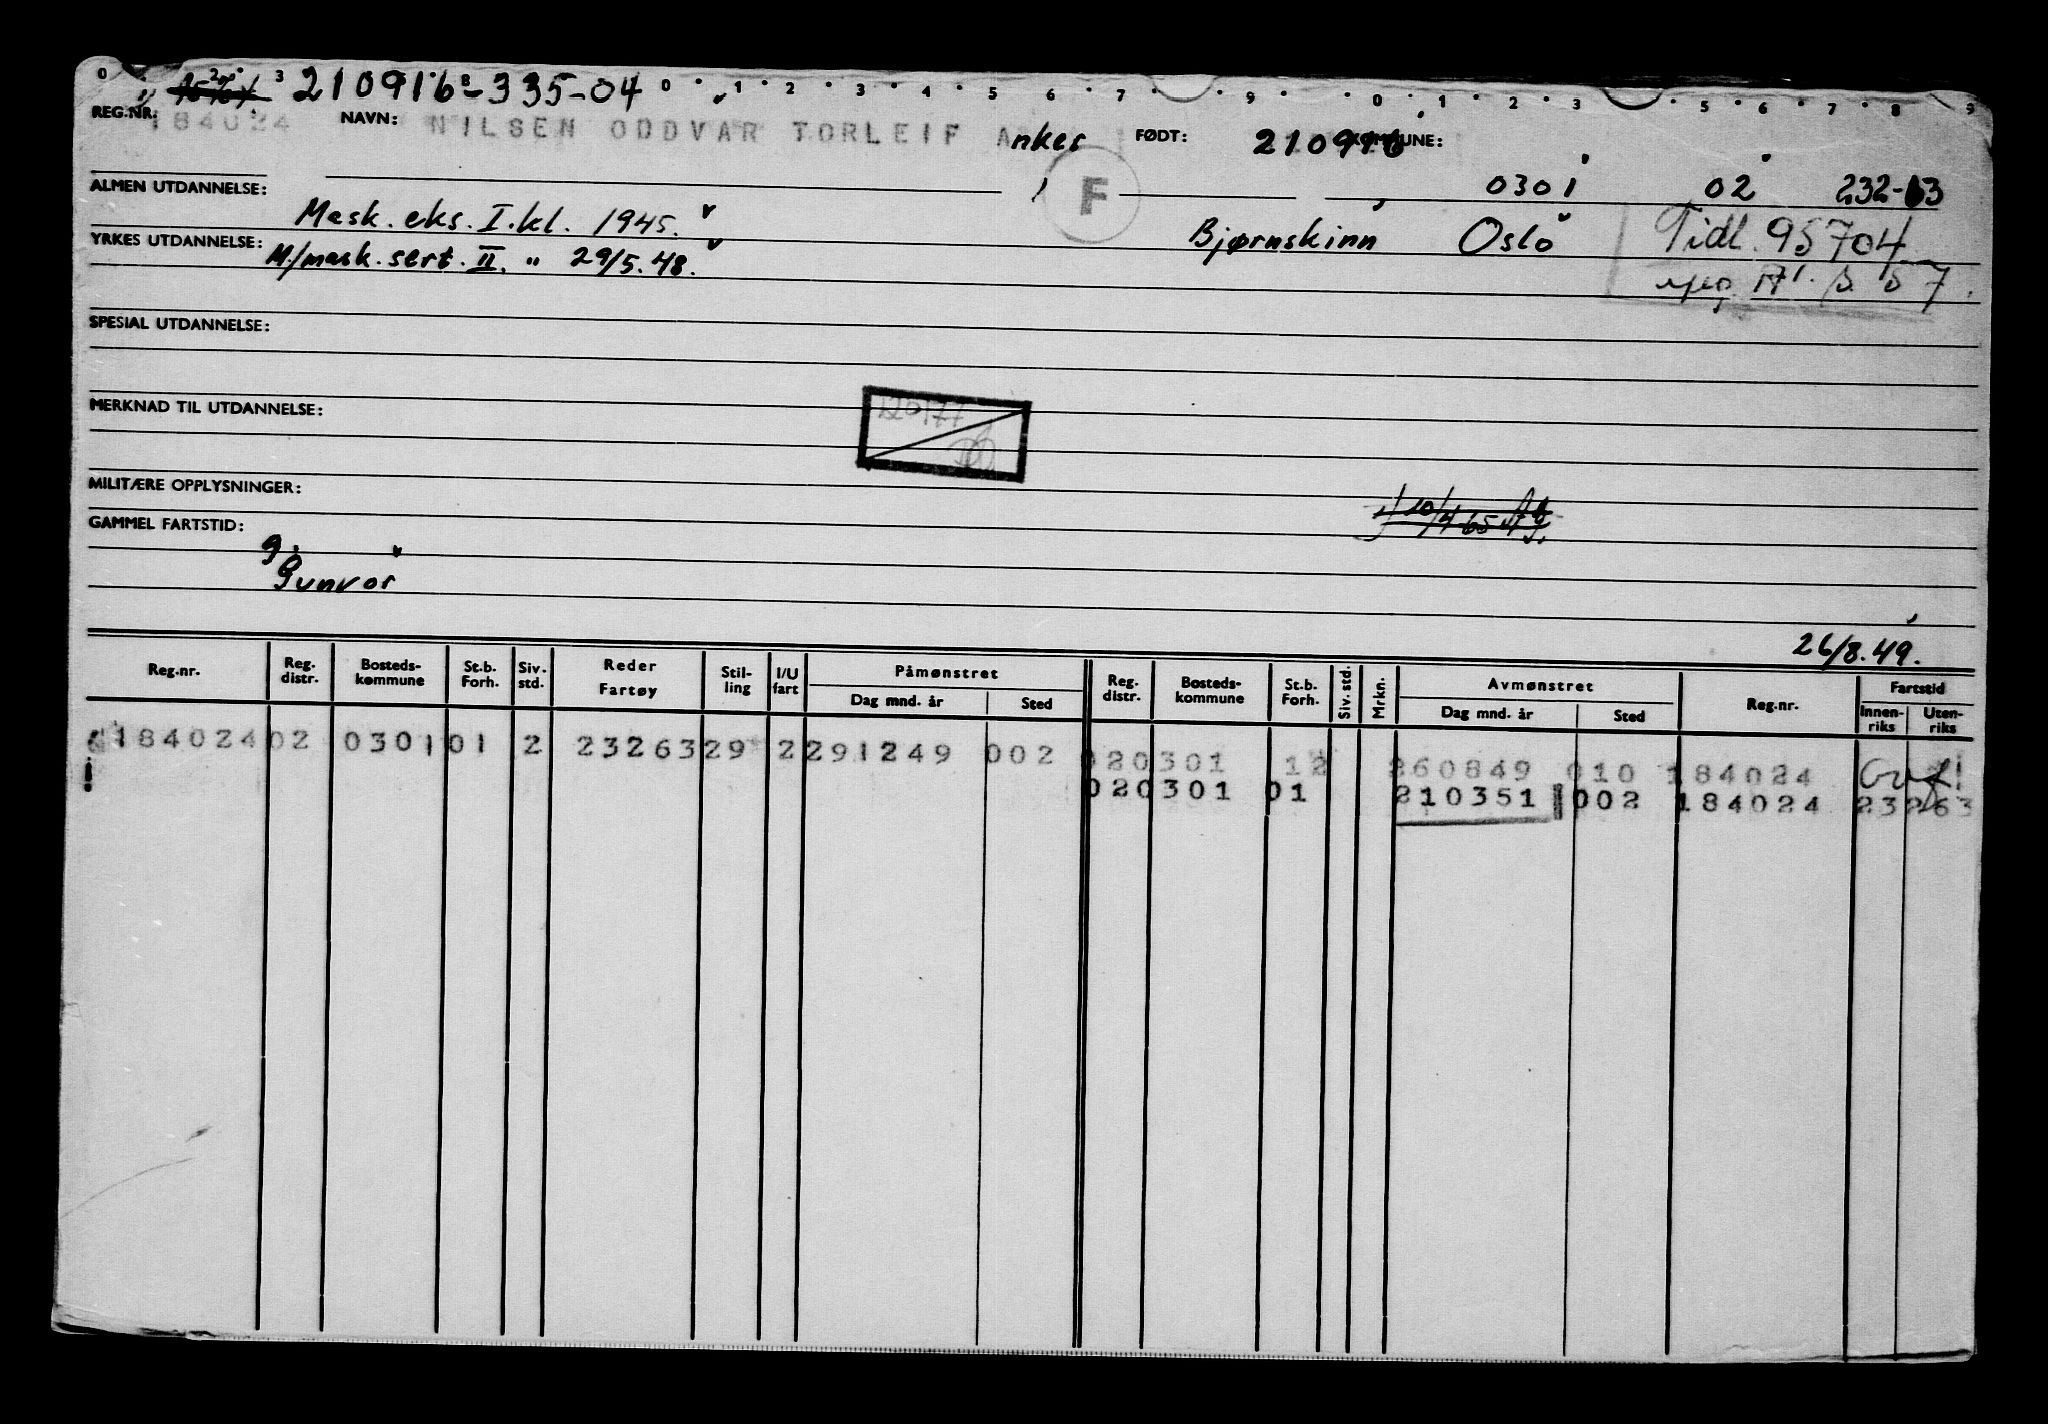 0 2 3 210916-335-04 8 0 1 2 3 4 5 6 7 9 0 1 2 3 5 6 7 8 9
REG.NR: 184024 NAVN: NILSEN ODDVAR TORLEIF Anker FØDT: 210916 KOMMUNE:
F 0301 02 232-63
ALMEN UTDANNELSE: Mask. eks. I. kl. 1945. Bjørnskinn Oslo Tidl. 95704
YRKES UTDANNELSE: M./mask. sert. II. " 29/5.48.
SPESIAL UTDANNELSE:
MERKNAD TIL UTDANNELSE:
MILITÆRE OPPLYSNINGER:
GAMMEL FARTSTID:
g.
Gunvor
26/8.49.
Reg.nr. Reg. distr. Bosteds-kommune St.b. Forh. Siv. std. Reder Fartøy Stil-ling I/U fart Påmønstret Dag mnd. år Sted Reg. distr. Bosteds-kommune St.b. Forh. Siv. std. Mrkn. Avmønstret Dag mnd. år Sted Reg.nr. Fartstid Innen-riks Uten-riks
184024 02 0301 01 2 23263 29 2 291249 002 02 0301 12 260849 010 184024
02 0301 01 210351 002 184024 23263